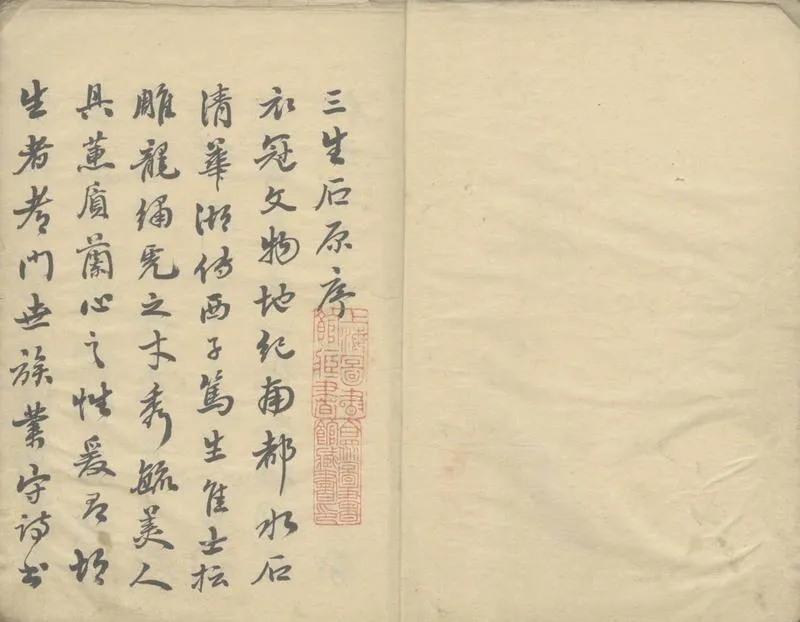 三生石原序
衣冠文物地紀南都水石
清華湖傳西子篤生佳士抎
雕龍繡虎之才秀毓美人
具蕙質蘭心之性爰有胡
生者耑門世族業守詩書